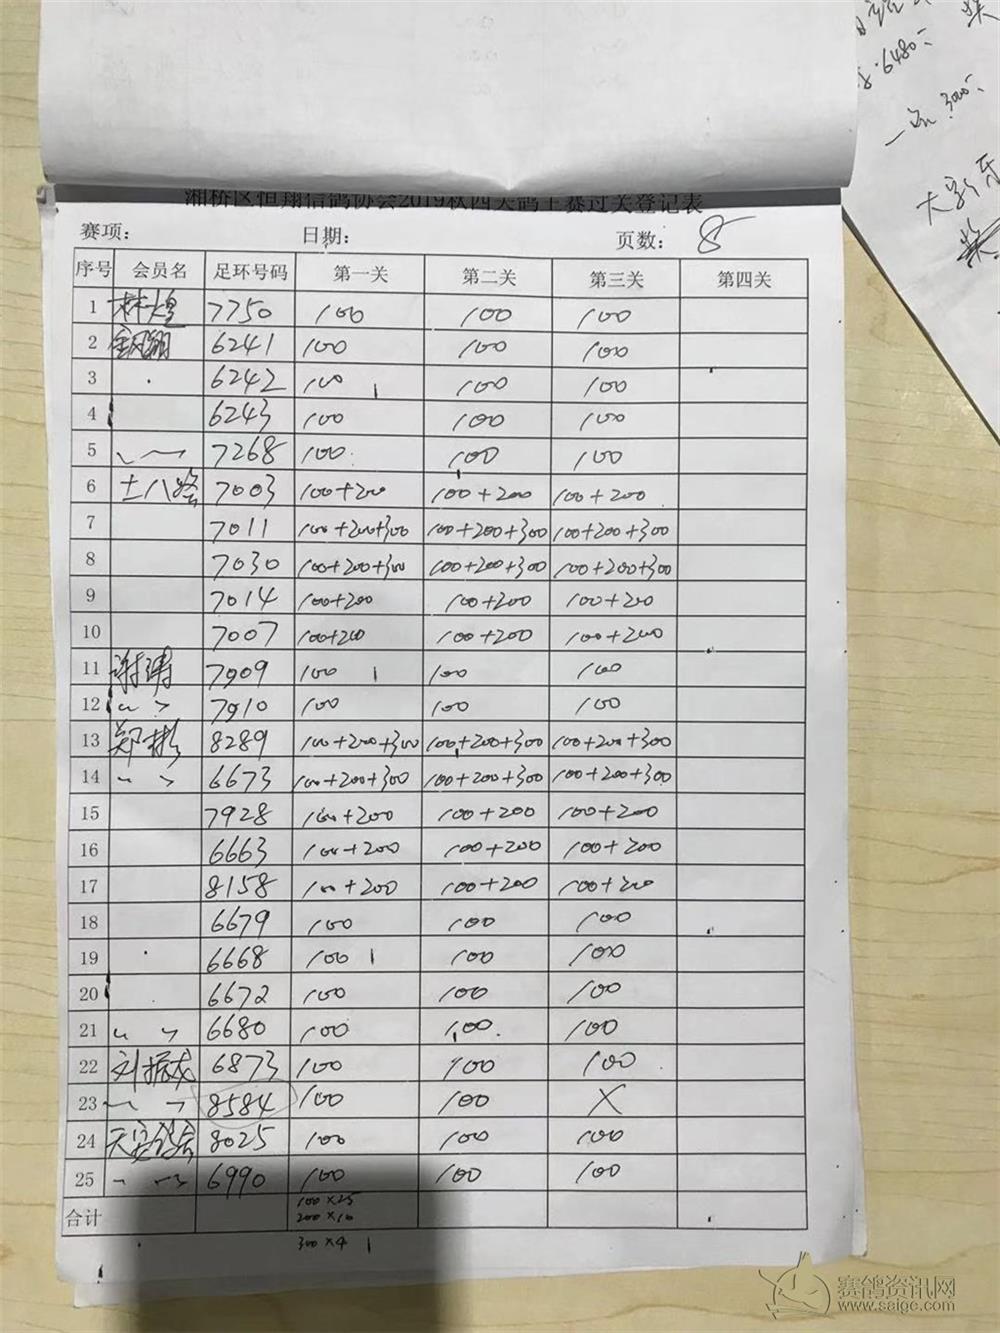 湘桥区恒翔信鸽协会2019秋四关鸽王赛过关登记表
赛项: 日期: 页数: 8
序号 会员名 足环号码 第一关 第二关 第三关 第四关
1 林煌 7750 100 100 100
2 6241 100 100 100
3 6242 100 100 100
4 6243 100 100 100
5 7268 100 100 100
6 十八路 7003 100+200 100+200 100+200
7 7011 100+200+300 100+200+300 100+200+300
8 7030 100+200+300 100+200+300 100+200+300
9 7014 100+200 100+200 100+200
10 7007 100+200 100+200 100+200
11 谢涛 7909 100 100 100
12 〃 7910 100 100 100
13 郑彬 8289 100+200+300 100+200+300 100+200+300
14 〃 6673 100+200+300 100+200+300 100+200+300
15 7928 100+200 100+200 100+200
16 6663 100+200 100+200 100+200
17 8158 100+200 100+200 100+200
18 6679 100 100 100
19 6668 100 100 100
20 6672 100 100 100
21 〃 6680 100 100 100
22 刘振龙 6873 100 100 100
23 〃 8584 100 100 X
24 8025 100 100 100
25 〃 6990 100 100 100
合计
100×25
200×10
300×4
6480
300
赛鸽资讯网
www.saige.com